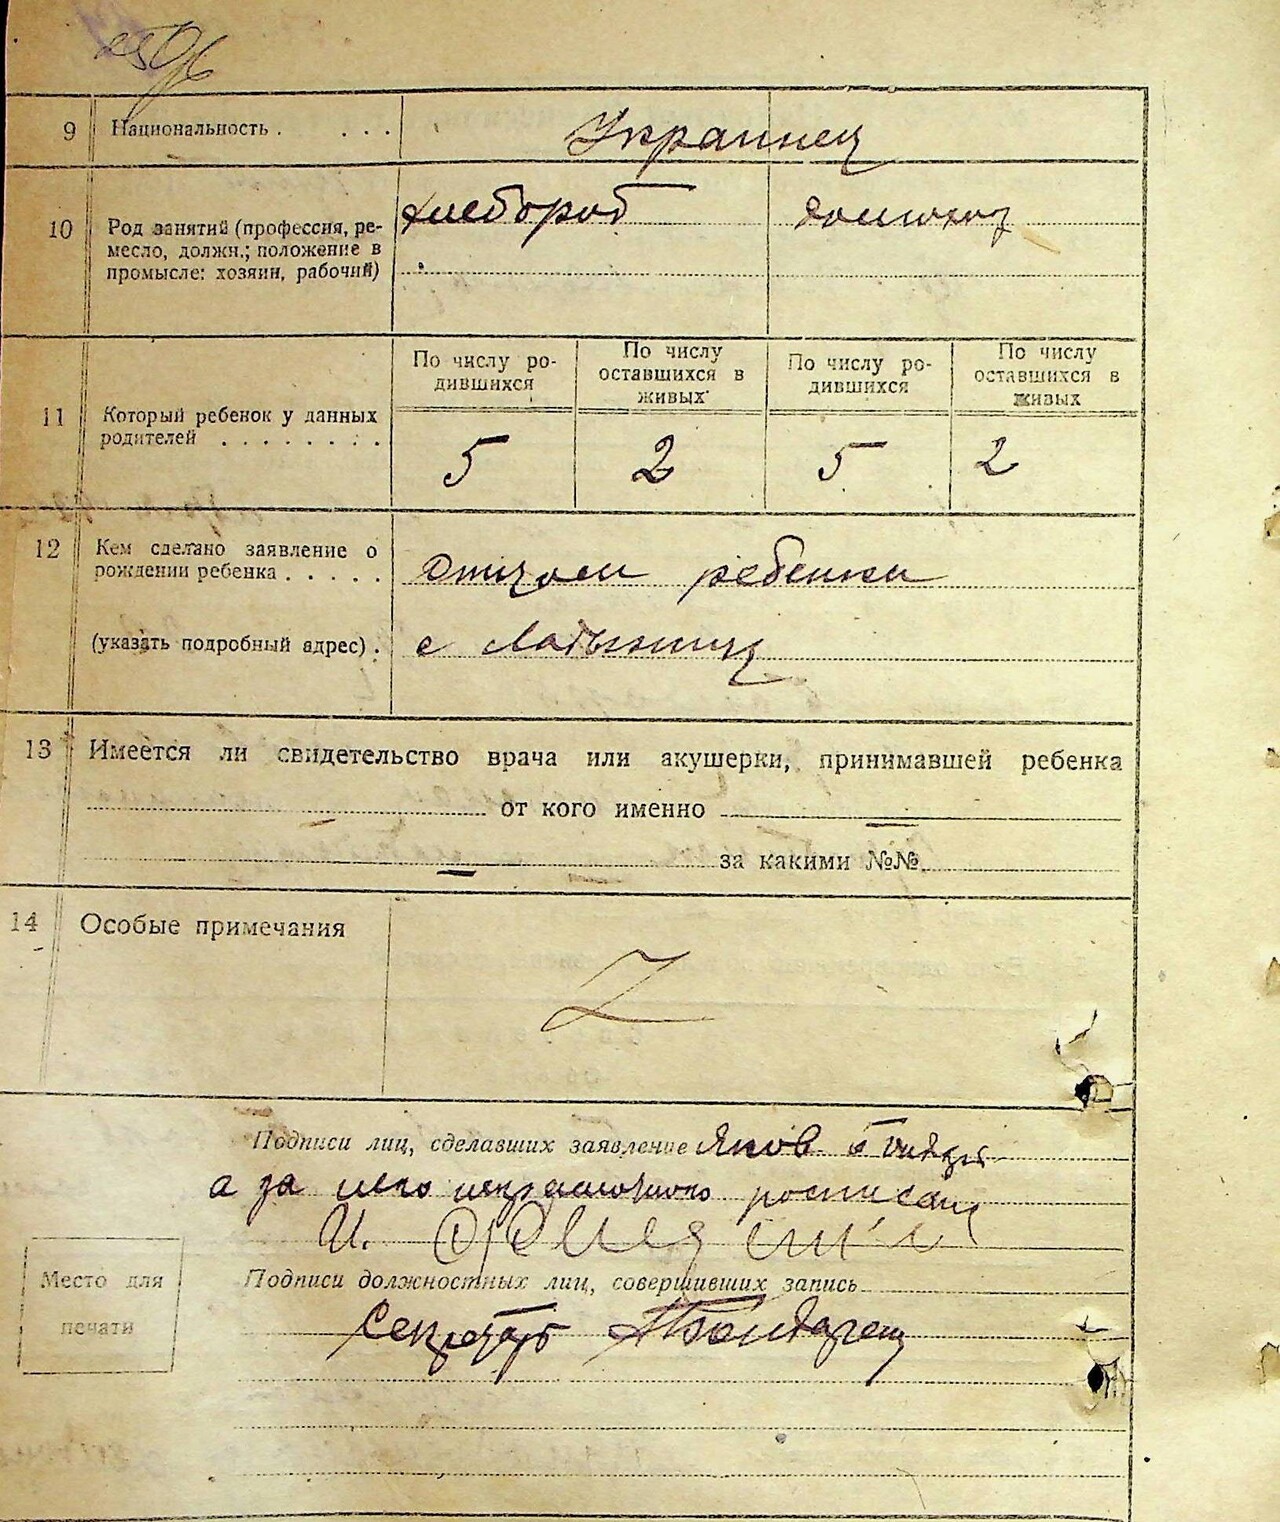 9 Национальность . . . . . Украинец
10 Род занятий (профессия, ре-
месло, должн.; положение в
промысле: хозяин, рабочий)
хлебороб домохоз
По числу ро-
дившихся
По числу
оставшихся в
живых
По числу ро-
дившихся
По числу
оставшихся в
живых
11 Который ребенок у данных
родителей . . . . . . . .
5 2 5 2
12 Кем сделано заявление о
рождении ребенка . . . . .
отцом ребенка
(указать подробный адрес) . с
13 Имеется ли свидетельство врача или акушерки, принимавшей ребенка
от кого именно —
— за какими №№
14 Особые примечания
Z
Подписи лиц, сделавших заявление Яков
а за него неграмотного росписался
И.
Место для
печати
Подписи должностных лиц, совершивших запись
Секретарь